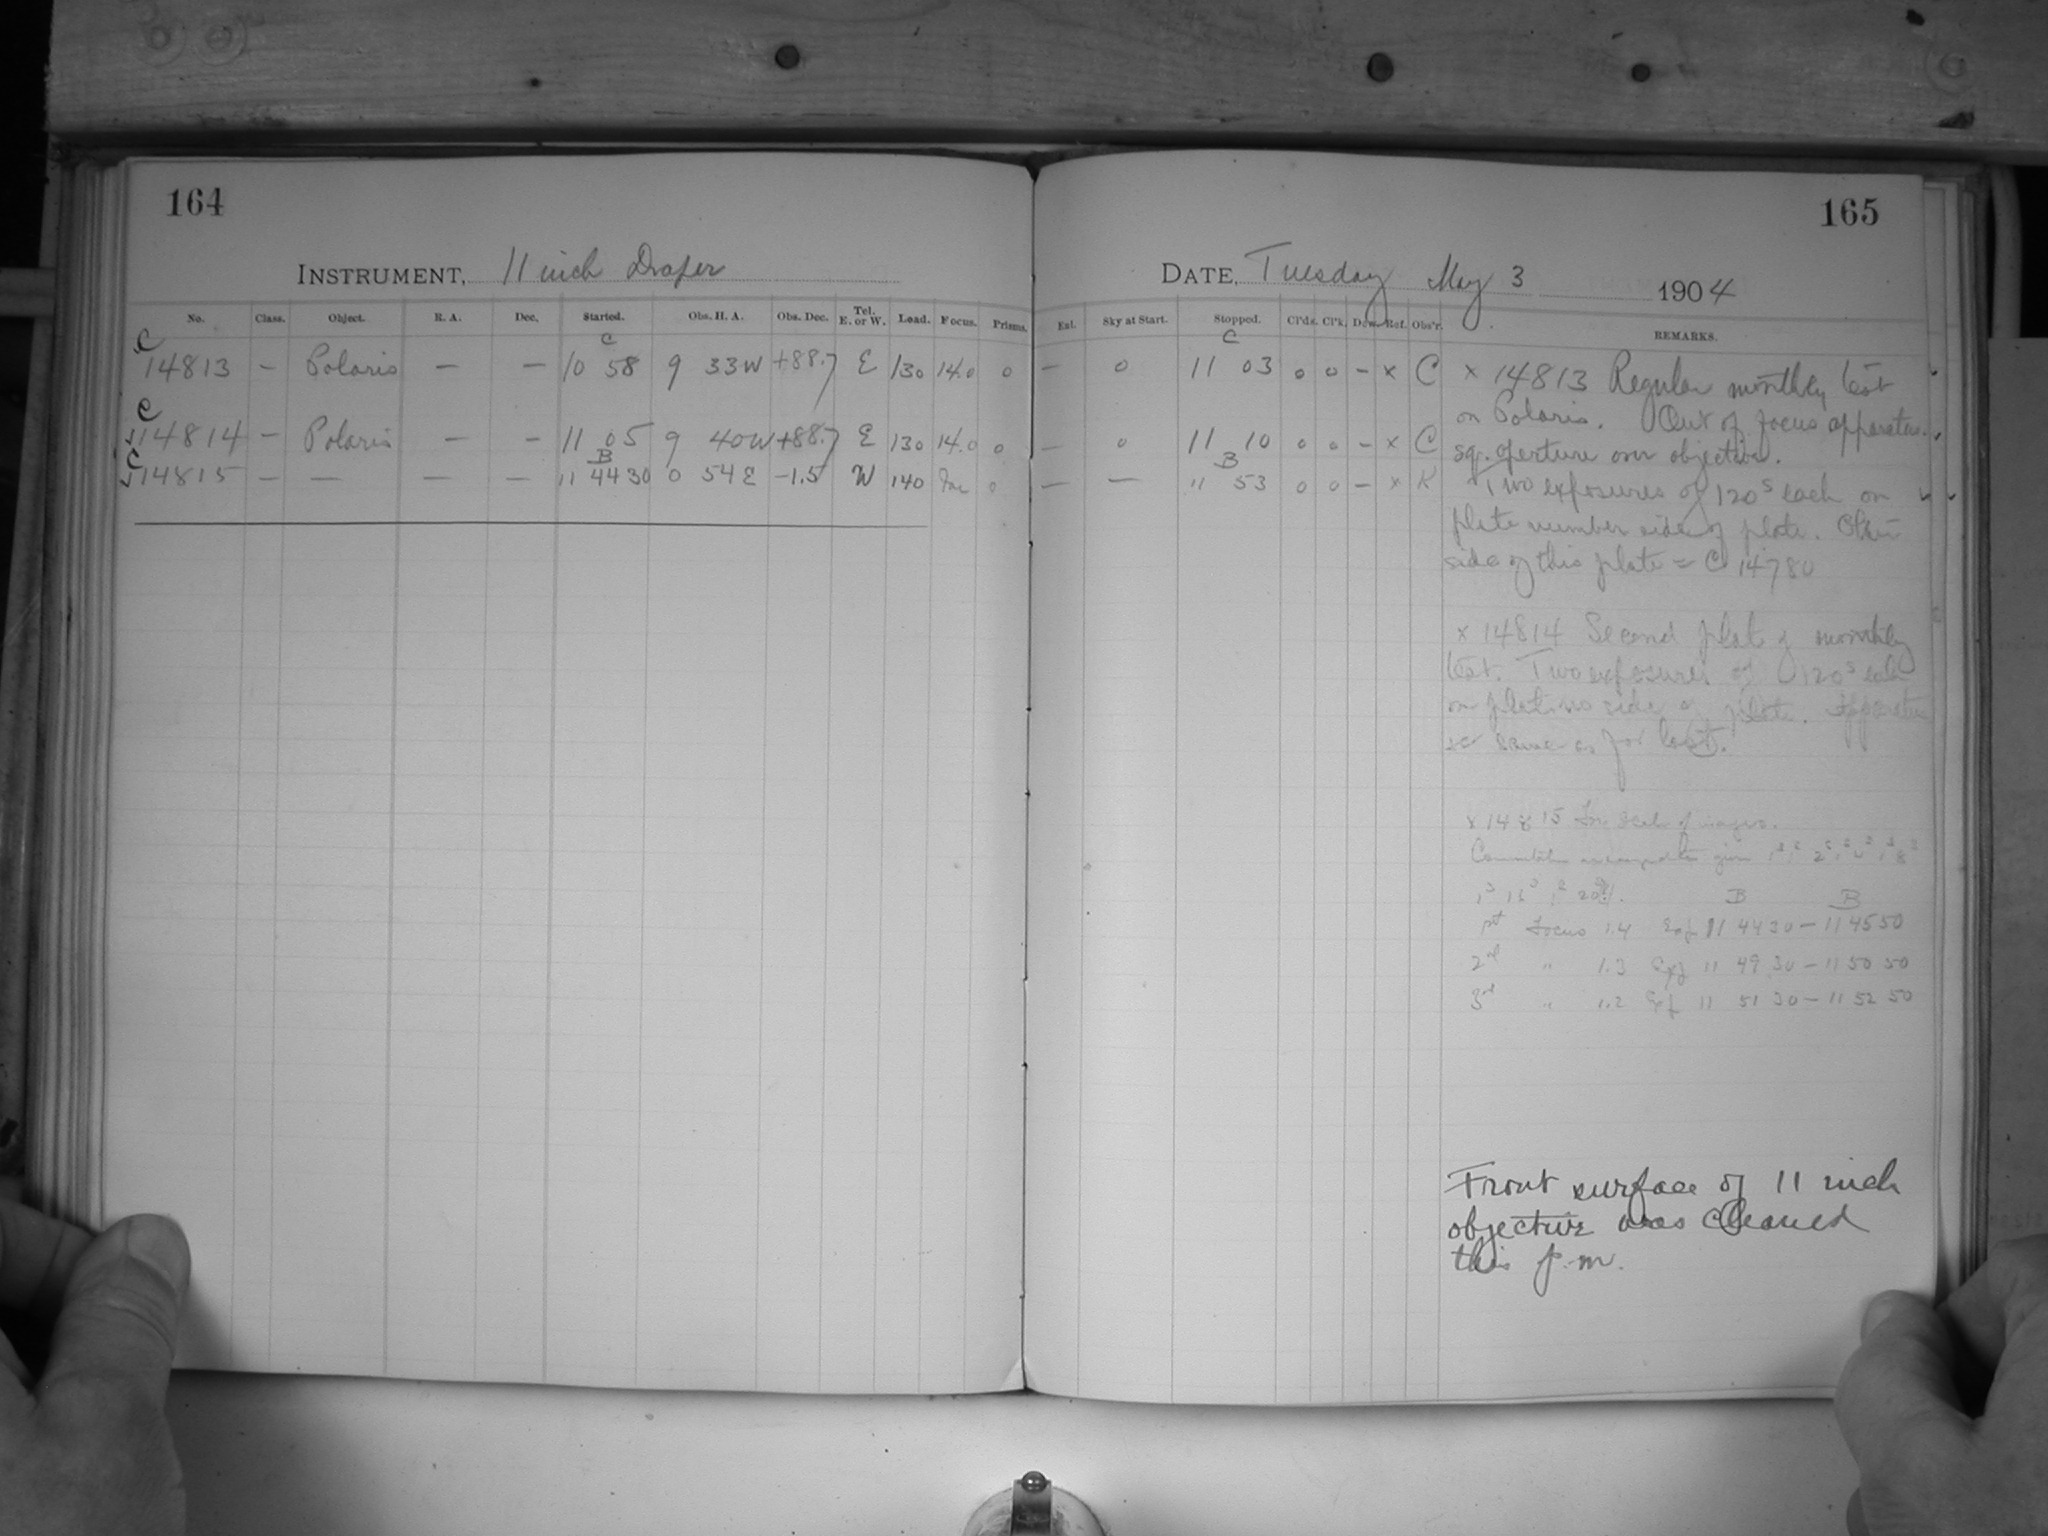 164
INSTRUMENT, 11 inch Draper
No. Class. Object. R. A. Dec. Started. Obs. H. A. Obs. Dec. Tel. E. or W. Load. Focus. Prisms.
C C
14813 — Polaris — — 10 58 9 33W +88.7 E 130 14.0 0
C
√14814 — Polaris — — 11 05 9 40W +88.7 E 130 14.0 0
C B
√14815 — — — — 11 44 30 0 54E -1.5 W 140 0
165
DATE, Tuesday May 3 1904
Est. Sky at Start. Stopped. Cl'ds. Cl'k. Dew. Ref. Obs'r. REMARKS.
C
— 0 11 03 0 0 — x C
— 0 11 10 0 0 — x C
B
— — 11 53 0 0 — x K
x 14813 Regular monthly test
on Polaris. Out of focus apparatus.
sq. aperture over objective.
Two exposures of 120s each on
plate number side of plate. Other
side of this plate = C 14780
x 14814 Second plate of monthly
test. Two exposures of 120s each
on plate no side of plate. Apparatus
same as for last.
x 14815 For scale of images.
B B
1st Focus 1.4 Exp 11 44 30 — 11 45 50
2nd " 1.3 Exp 11 49 30 — 11 50 50
3rd " 1.2 Exp 11 51 30 — 11 52 50
Front surface of 11 inch
objective was cleaned
this p.m.